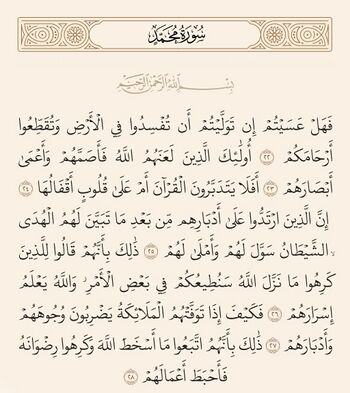 سُورَةُ مُحَمَّدٍ
بِسْمِ اللَّهِ الرَّحْمَٰنِ الرَّحِيمِ
فَهَلْ عَسَيْتُمْ إِن تَوَلَّيْتُمْ أَن تُفْسِدُوا فِي الْأَرْضِ وَتُقَطِّعُوا
أَرْحَامَكُمْ ٢٢ أُولَٰئِكَ الَّذِينَ لَعَنَهُمُ اللَّهُ فَأَصَمَّهُمْ وَأَعْمَىٰ
أَبْصَارَهُمْ ٢٣ أَفَلَا يَتَدَبَّرُونَ الْقُرْآنَ أَمْ عَلَىٰ قُلُوبٍ أَقْفَالُهَا ٢٤
إِنَّ الَّذِينَ ارْتَدُّوا عَلَىٰ أَدْبَارِهِم مِّن بَعْدِ مَا تَبَيَّنَ لَهُمُ الْهُدَى
الشَّيْطَانُ سَوَّلَ لَهُمْ وَأَمْلَىٰ لَهُمْ ٢٥ ذَٰلِكَ بِأَنَّهُمْ قَالُوا لِلَّذِينَ
كَرِهُوا مَا نَزَّلَ اللَّهُ سَنُطِيعُكُمْ فِي بَعْضِ الْأَمْرِ وَاللَّهُ يَعْلَمُ
إِسْرَارَهُمْ ٢٦ فَكَيْفَ إِذَا تَوَفَّتْهُمُ الْمَلَائِكَةُ يَضْرِبُونَ وُجُوهَهُمْ
وَأَدْبَارَهُمْ ٢٧ ذَٰلِكَ بِأَنَّهُمُ اتَّبَعُوا مَا أَسْخَطَ اللَّهَ وَكَرِهُوا رِضْوَانَهُ
فَأَحْبَطَ أَعْمَالَهُمْ ٢٨